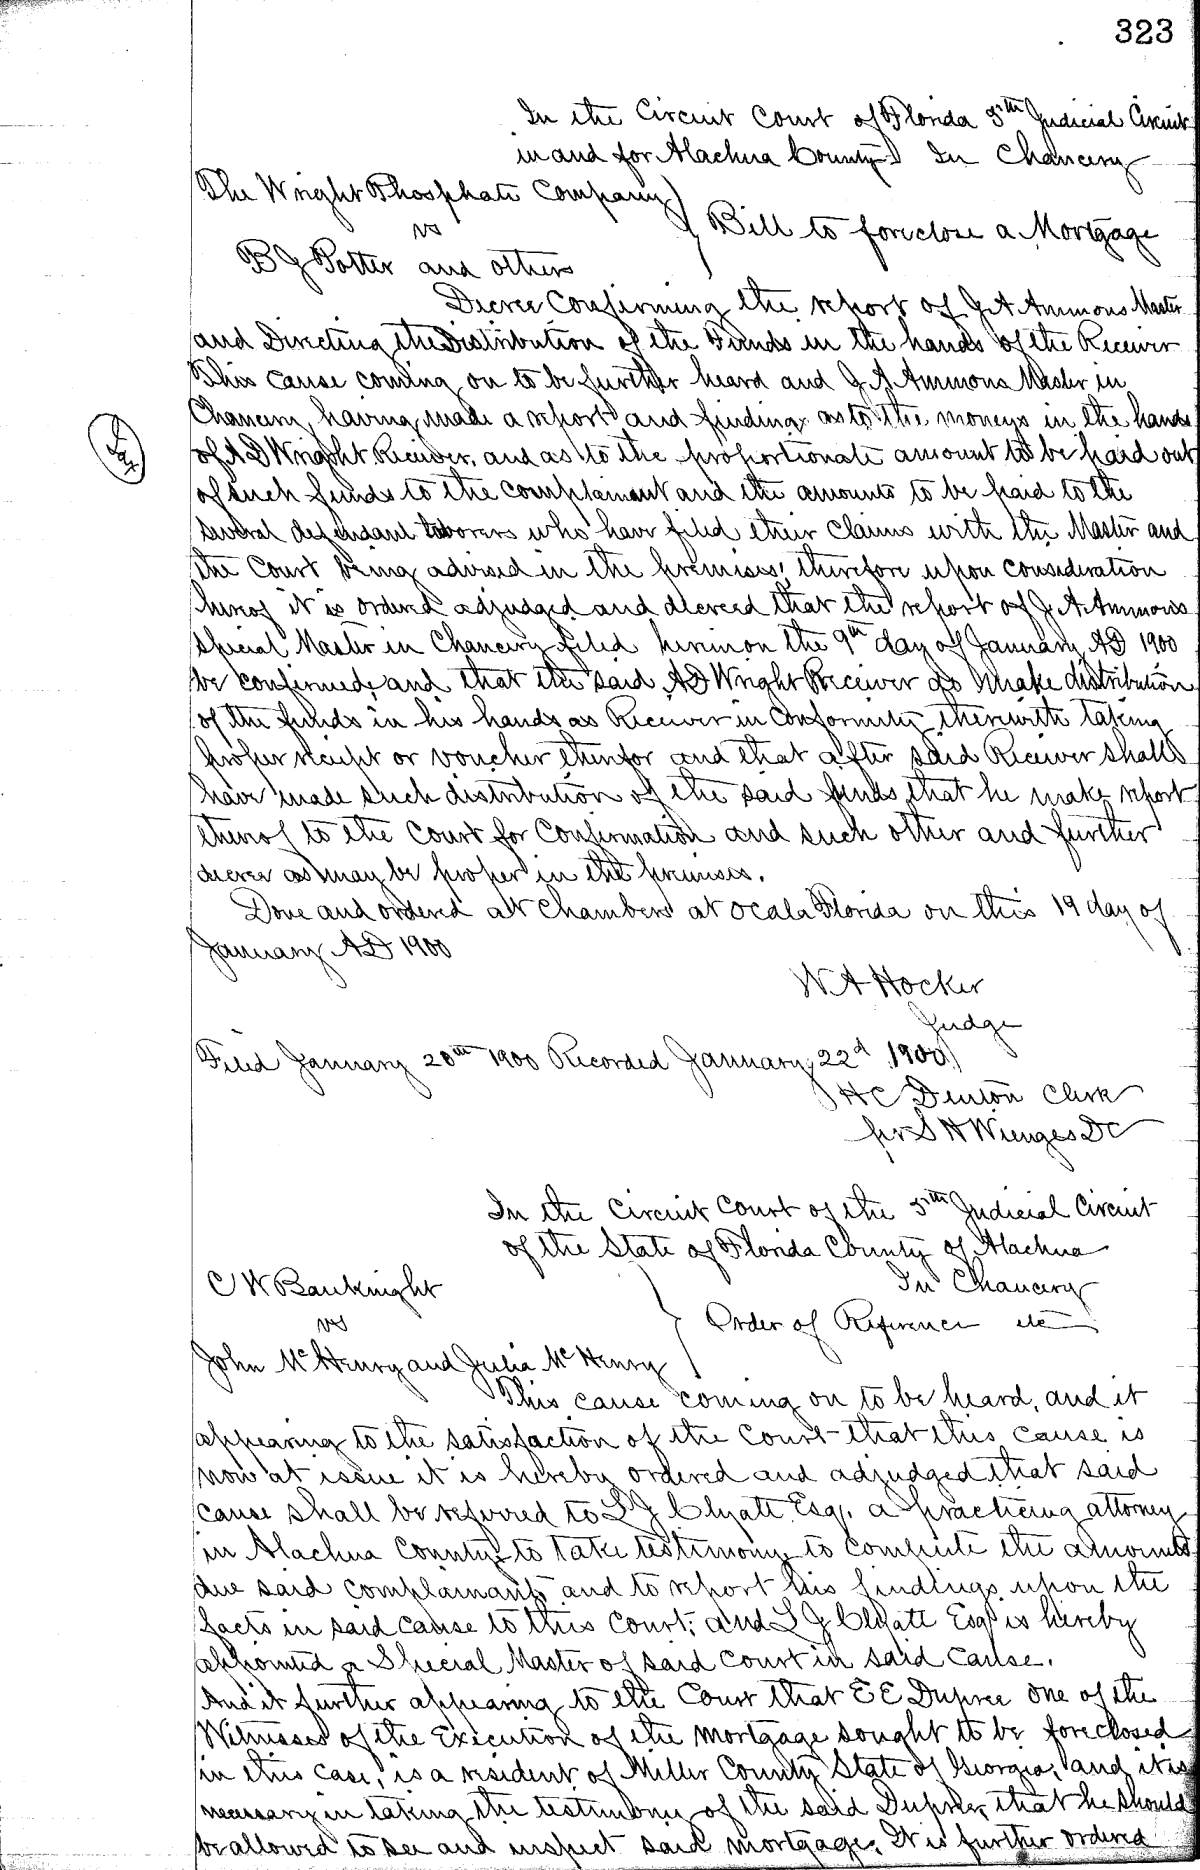 323
In the Circuit Court of Florida 5th Judicial Circuit
in and for Alachua County In Chancery
The Wright Phosphate Company
vs
Bill to foreclose a Mortgage
B J Potter and others
Decree Confirming the report of J A Ammons Master
and Directing the Distribution of the Funds in the hands of the Receiver
This cause coming on to be further heard and J A Ammons Master in
Chancery having made a report and finding as to the moneys in the hands
of A D Wright Receiver, and as to the proportionate amount to be paid out
of such funds to the complainant and the amounts to be paid to the
several defendant laborers who have filed their claims with the Master and
the Court being advised in the premises, therefore upon consideration
hereof it is ordered adjudged and decreed that the report of J. A. Ammons
Special Master in Chancery filed herein on the 9th day of January AD 1900
be confirmed, and that the said A D Wright Receiver do make distribution
of the funds in his hands as Receiver in conformity therewith taking
proper receipt or voucher therefor and that after said Receiver shall
have made such distribution of the said funds that he make report
thereof to the Court for Confirmation and such other and further
decree as may be proper in the premises.
Done and ordered at Chambers at Ocala Florida on this 19 day of
January AD 1900
W A Hocker
Judge
Filed January 20th 1900 Recorded January 22d 1900
H C Denton Clerk
per S H Wienges DC
In the Circuit Court of the 5th Judicial Circuit
of the State of Florida County of Alachua
In Chancery
C W Bauknight
vs
Order of Reference etc
John McHenry and Julia McHenry
This cause coming on to be heard, and it
appearing to the satisfaction of the Court that this cause is
now at issue it is hereby ordered and adjudged that said
cause shall be referred to L J Clyatt Esq. a practicing attorney
in Alachua County to take testimony to compute the amounts
due said complainant, and to report his findings upon the
facts in said cause to this Court; and L J Clyatt Esq is hereby
appointed a Special Master of said court in said cause.
And it further appearing to the Court that E E Dupree one of the
Witnesses of the Execution of the mortgage sought to be foreclosed
in this case, is a resident of Miller County State of Georgia, and it is
necessary in taking the testimony of the said Dupree, that he should
be allowed to see and inspect said mortgage. It is further ordered